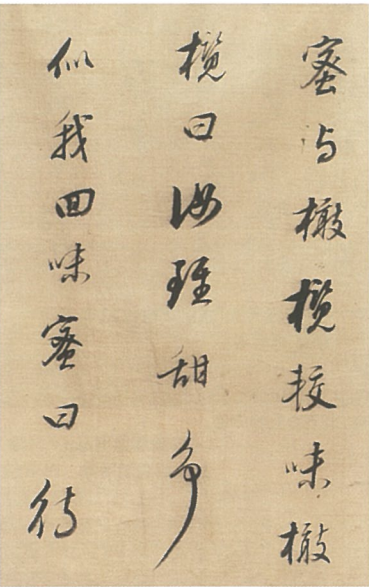 蜜与橄榄较味橄
榄曰汝虽甜争
似我回味蜜曰待